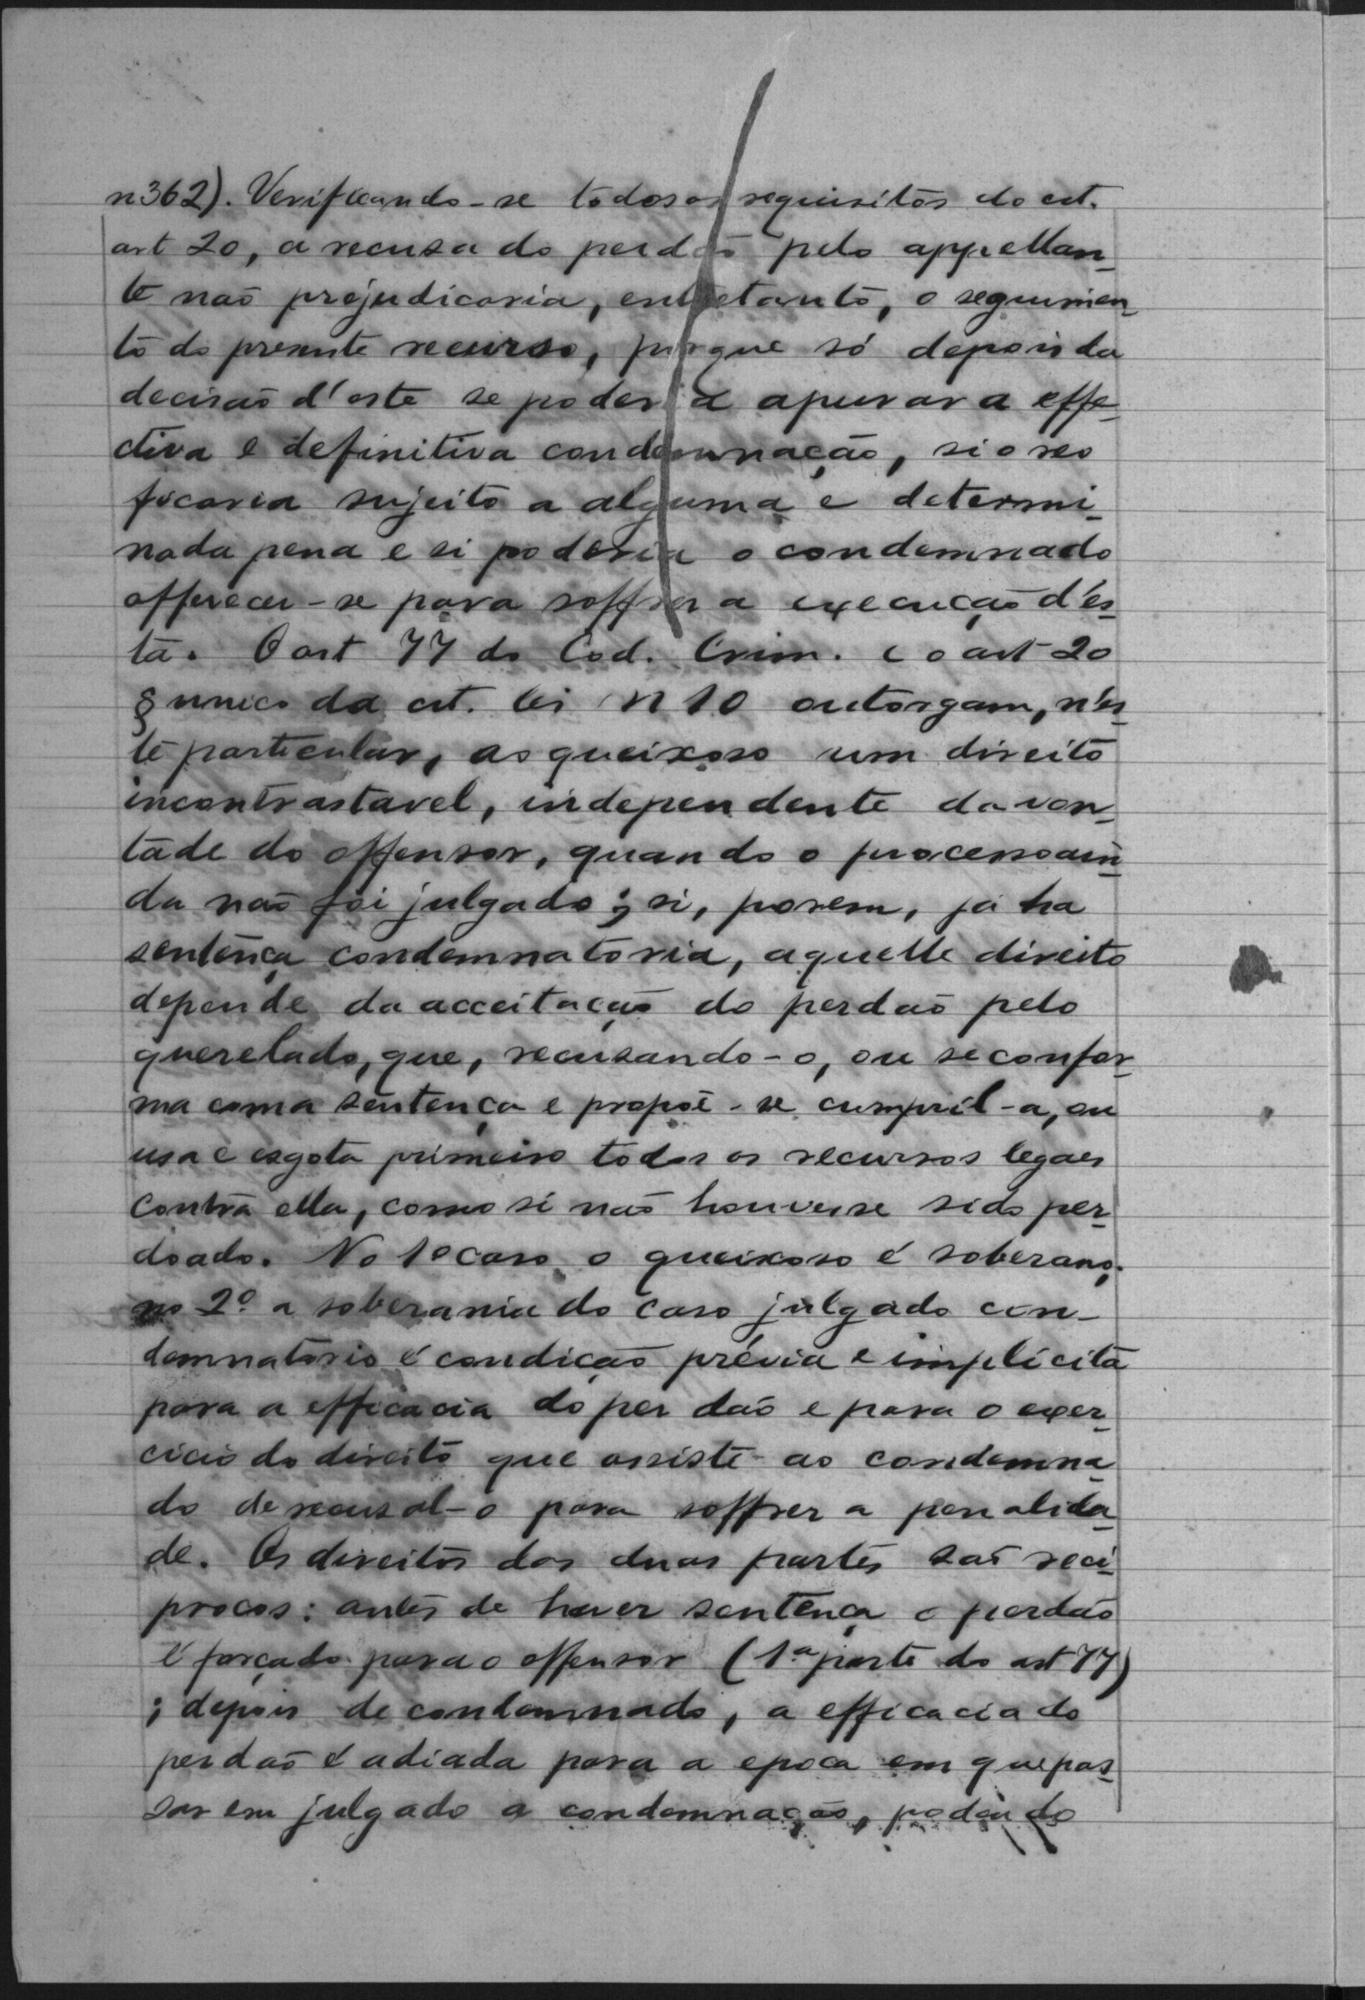 n 362). Verificando-se todos os requisitos do cit.
art 20, a recusa do perdão pelo appellan-
te não prejudicaria, entretanto, o seguimen-
to do presente recurso, porque só depois da
decisão d'este se poderia apurar a effe-
ctiva e definitiva condemnação, si o reo
ficaria sujeito a alguma e determi-
nada pena e si poderia o condemnado
offerecer-se para soffrer a execução d'es-
ta. O art 77 do Cod. Crim. e o art 20
§ unico da cit. lei n 10 outorgam, n'es-
te particular, ao queixoso um direito
incontrastavel, independente da von-
tade do offensor, quando o processo ain-
da não foi julgado; si, porem, já ha
sentença condemnatoria, aquelle direito
depende da acceitação do perdão pelo
querelado, que, recusando-o, ou se confor-
ma com a sentença e propõe-se cumpril-a, ou
usa e esgota primeiro todos os recursos legaes
contra ella, como si não houvesse sido per-
doado. No 1º caso o queixoso é soberano;
no 2º a soberania do caso julgado con-
demnatorio é condição prévia e implicita
para a efficacia do perdão e para o exer-
cicio do direito que assiste ao condemna-
do de recusal-o para soffrer a penalida-
de. Os direitos das duas partes são reci-
procos: antes de haver sentença o perdão
é forçado para o offensor (1.ª parte do art 77)
; depois de condemnado, a efficacia do
perdão é adiada para a epoca em que pas-
sar em julgado a condemnação, podendo